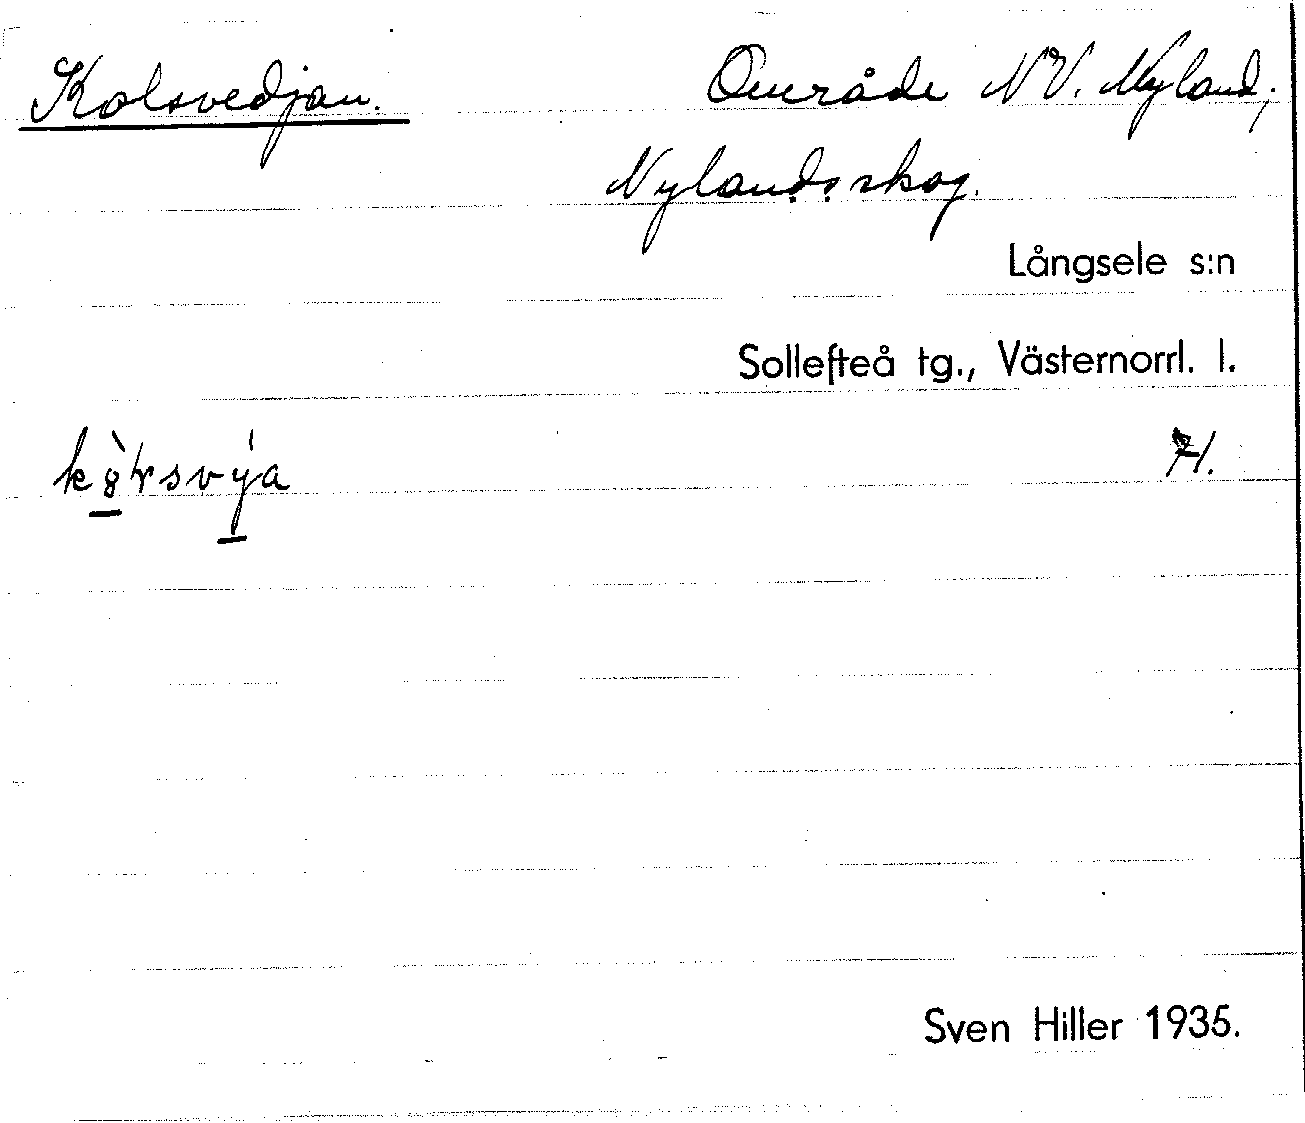 Kolsvedjan. Område NV. Nyland;
Nylandsskog.
Långsele s:n
Sollefteå tg., Västernorrl. l.
71.
Sven Hiller 1935.